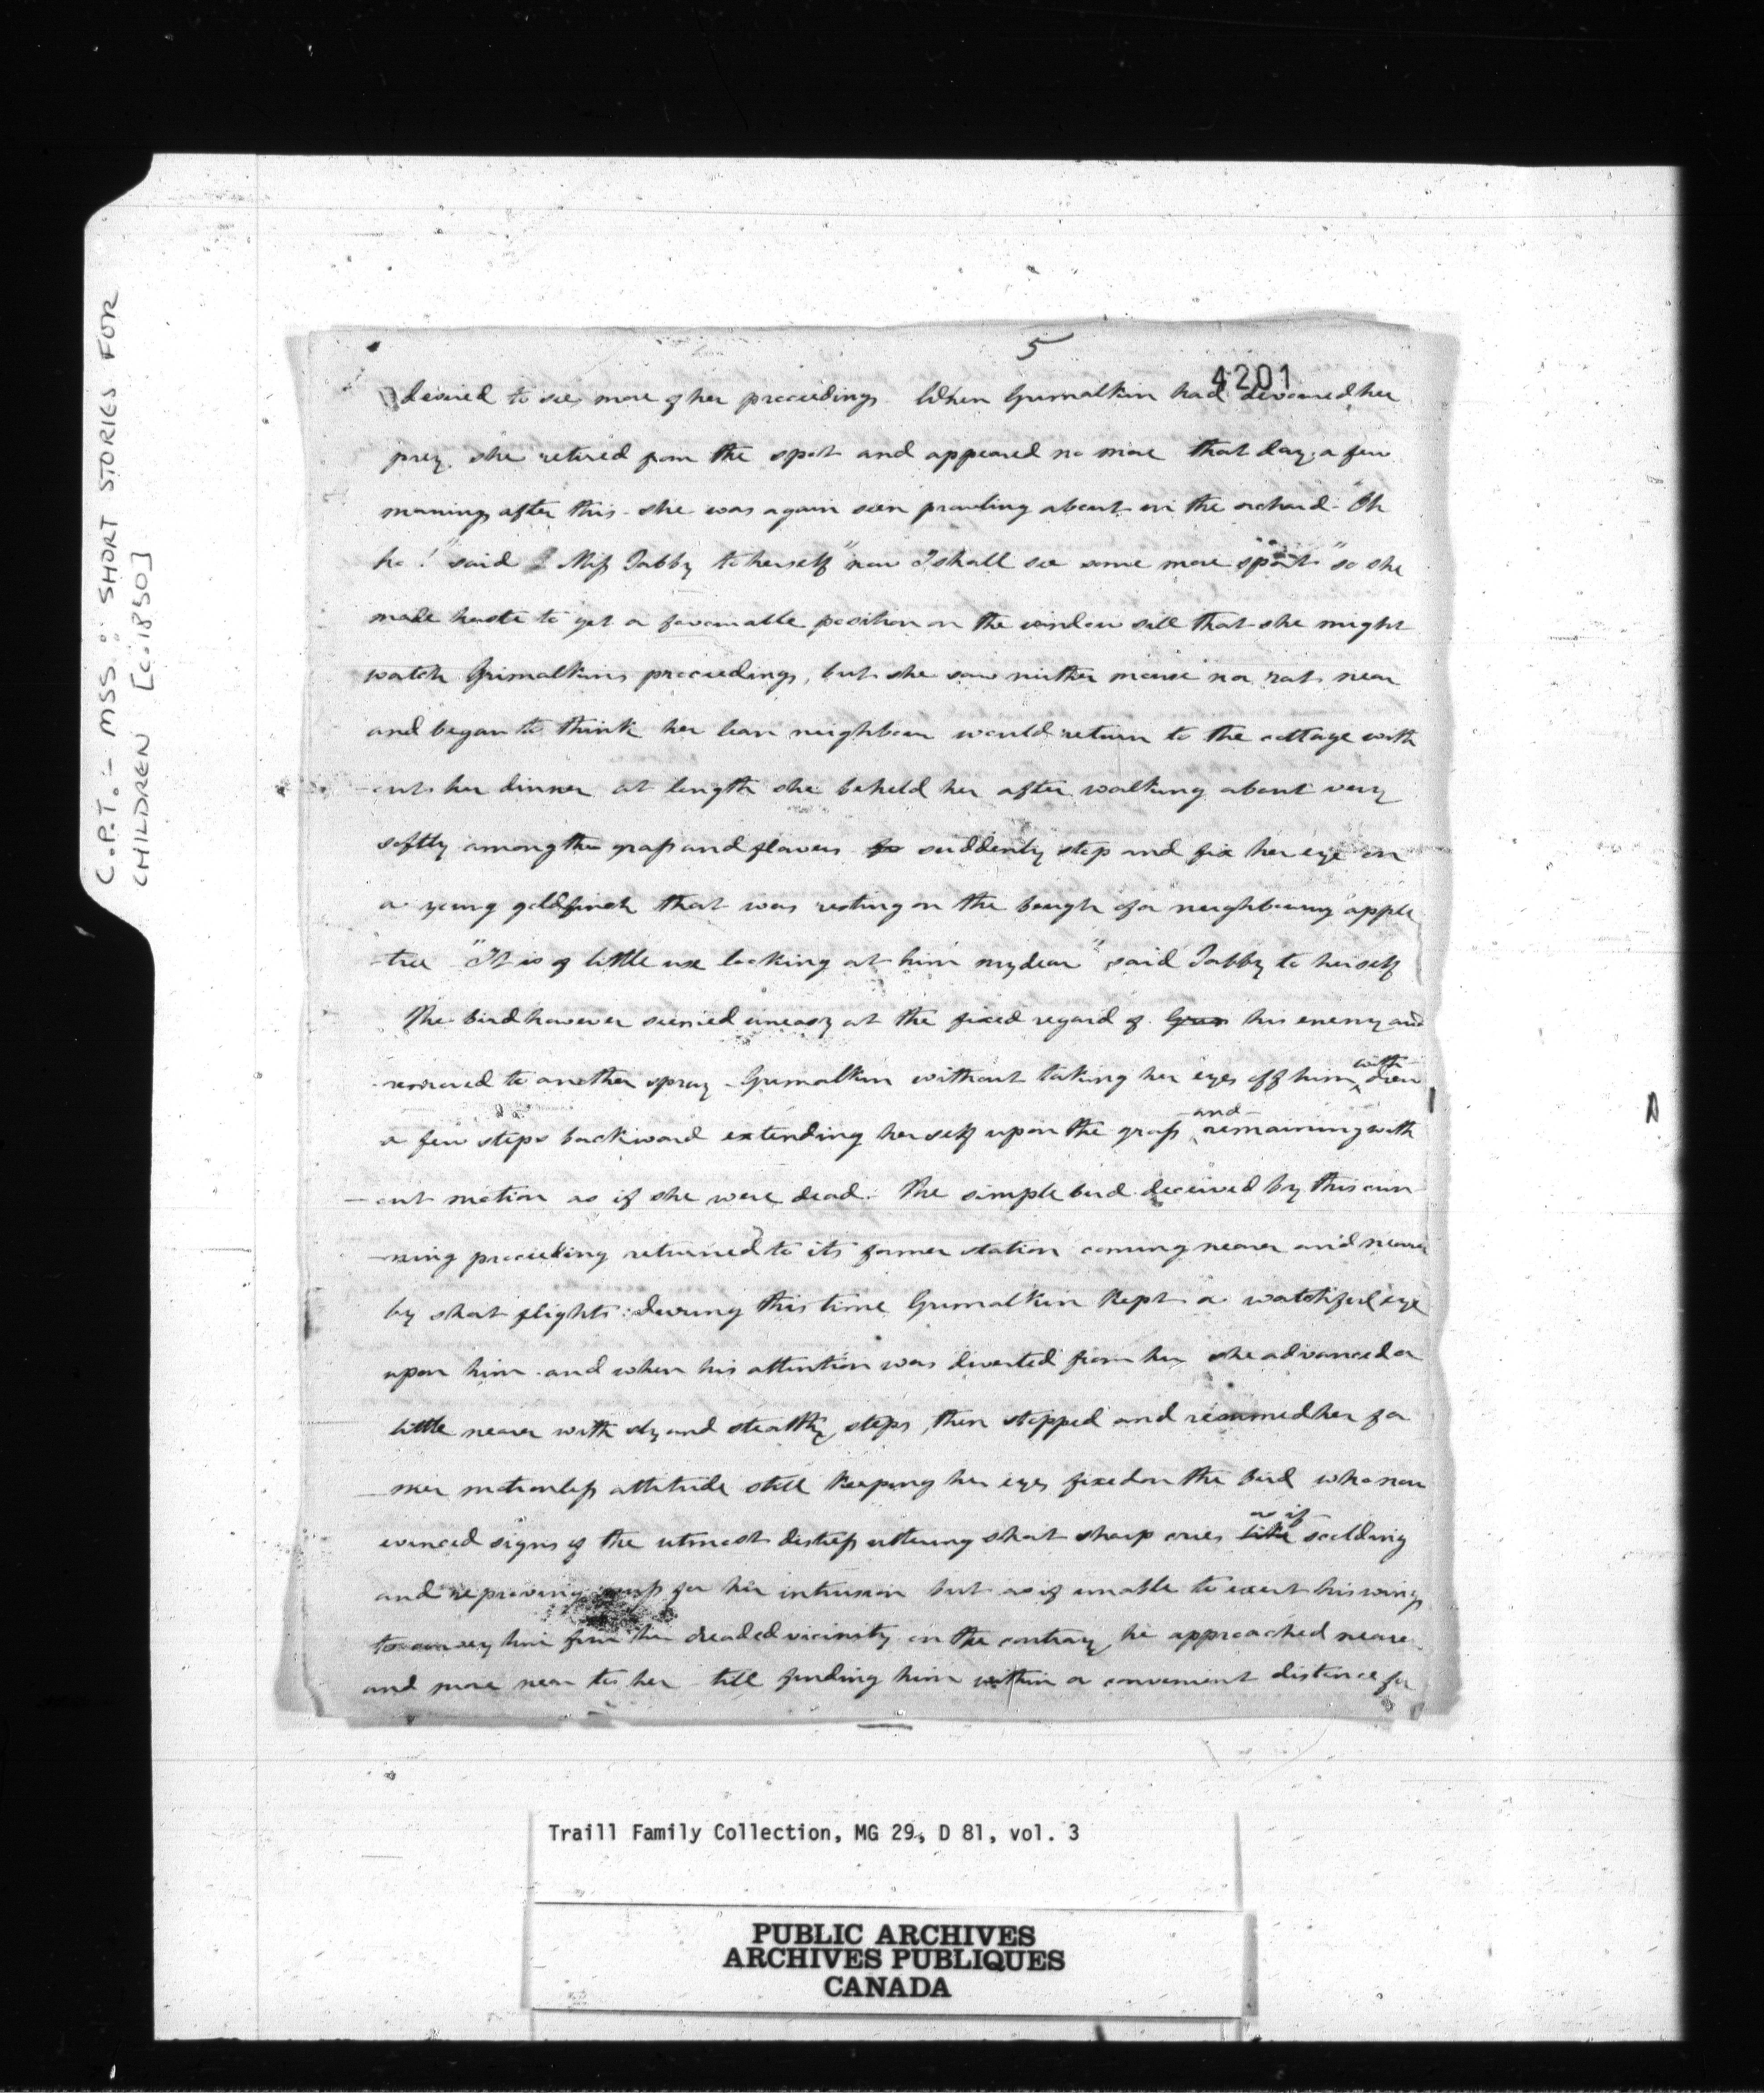 C.P.T. :- MSS. :: SHORT STORIES FOR
CHILDREN [c.1850]
5
4201
desired to see more of her proceedings When Grimalkin had devoured her
prey. she retired from the spot and appeared no more that day. a few
mornings after this she was again seen prowling about in the orchard. "Oh
ho!" said Miss Tabby to herself "now I shall see some more sport" so she
made haste to get a favourable position on the window sill that she might
watch Grimalkins proceedings, but she saw neither mouse nor rat near
and began to think her lean neighbour would return to the cottage with
-out her dinner at length she beheld her after walking about very
softly among the grass and flowers to suddenly stop and fix her eye on
a young goldfinch that was resting on the bough of a neighbouring apple
-tree "It is of little use looking at him my dear" said Tabby to herself
The bird however seemed uneasy at the fixed regard of Grim his enemy and
removed to another spray - Grimalkin without taking her eyes off him with drew
a few steps backward extending herself upon the grass and remaining with
-out motion as if she were dead. The simple bird deceived by this cun
-ning proceeding returned to its former station coming nearer and nearer
by short flights: during this time Grimalkin kept a watchful eye
upon him and when his attention was diverted from her she advanced a
little nearer with sly and stealthy steps, then stopped and resumed her for
-mer motionless attitude still keeping her eyes fixed on the bird who now
evinced signs of the utmost distress uttering short sharp cries like as if scolding
and reproving puss for her intrusion but as if unable to exert his wings
to convey him from the dreaded vicinity on the contrary he approached nearer
and more near to her till finding him within a convenient distance for
Traill Family Collection, MG 29, D 81, vol. 3
PUBLIC ARCHIVES
ARCHIVES PUBLIQUES
CANADA